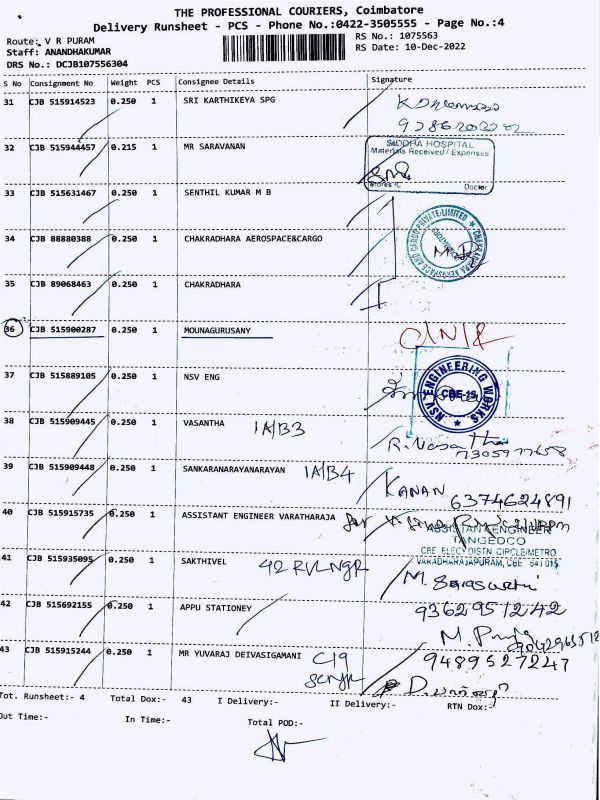 THE PROFESSIONAL COURIERS, Coimbatore
Delivery Runsheet - PCS - Phone No.:0422-3505555 - Page No.:4
Route: V R PURAM
RS No.: 1075563
Staff: ANANDHAKUMAR
RS Date: 10-Dec-2022
DRS No.: DCJB107556304
S No Consignment No Weight PCS Consignee Details Signature
31 CJB 515914523 0.250 1 SRI KARTHIKEYA SPG
32 CJB 515944457 0.215 1 MR SARAVANAN
SIDDHA HOSPITAL
Materials Received / Expenses
Stores I/C Doctor
33 CJB 515631467 0.250 1 SENTHIL KUMAR M B
34 CJB 88880388 0.250 1 CHAKRADHARA AEROSPACE&CARGO
CHAKRADHARA AEROSPACE AND CARGO PRIVATE LIMITED
35 CJB 89068463 0.250 1 CHAKRADHARA
36 CJB 515900287 0.250 1 MOUNAGURUSANY
37 CJB 515889105 0.250 1 NSV ENG
NSV ENGINEERING WORKS
CBE-15
38 CJB 515909445 0.250 1 VASANTHA 1A/B3
R. Vasantha
7305977658
39 CJB 515909448 0.250 1 SANKARANARAYANARAYAN 1A/B4
KANAN 6374624891
40 CJB 515915735 0.250 1 ASSISTANT ENGINEER VARATHARAJA
ASSISTANT ENGINEER
TANGEDCO
CBE ELECY DISTN CIRCLE/METRO
VARADHARAJAPURAM, CBE 641015
41 CJB 515935095 0.250 1 SAKTHIVEL 42 RVLNGR
M. Saraswathi
42 CJB 515692155 0.250 1 APPU STATIONEY
9362951242
43 CJB 515915244 0.250 1 MR YUVARAJ DEIVASIGAMANI C19
9489527247
Tot. Runsheet:- 4 Total Dox:- 43 I Delivery:- II Delivery:- RTN Dox:-
Out Time:- In Time:- Total POD:-